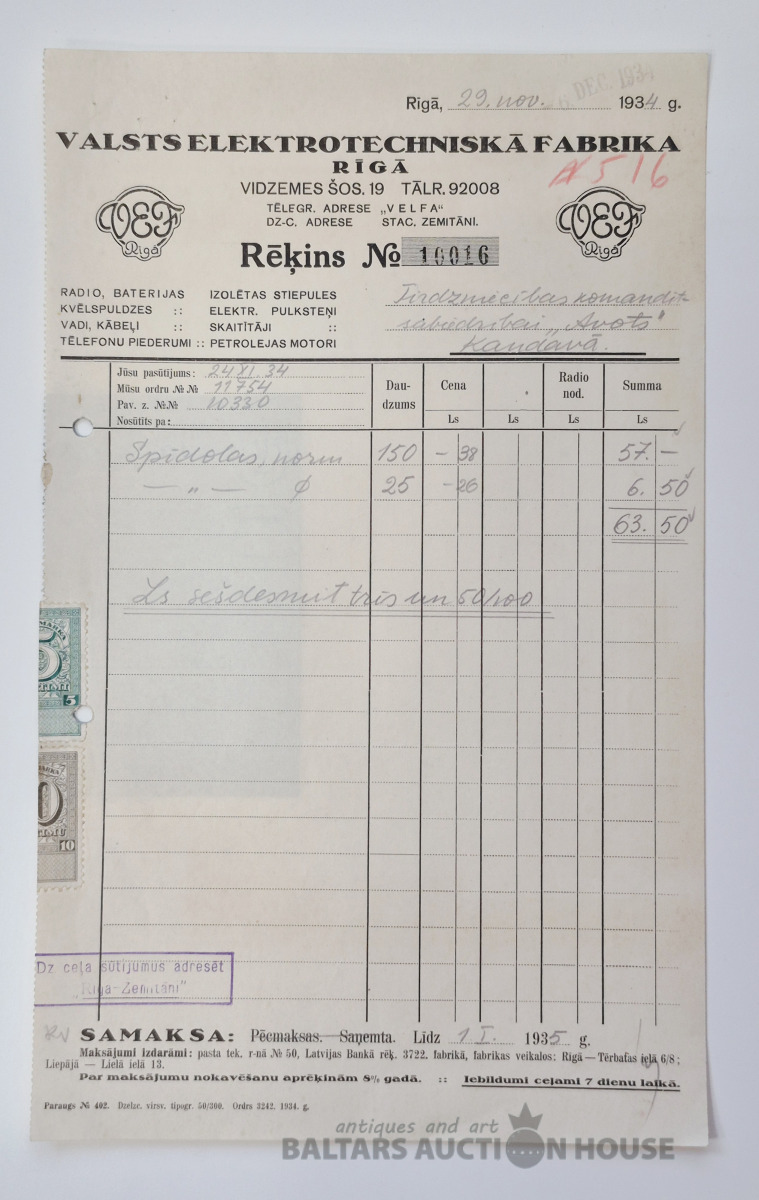 Rīgā, 29. nov. 1934 g.
DEC. 1934
VALSTS ELEKTROTECHNISKĀ FABRIKA
RĪGĀ
№ 516
VIDZEMES ŠOS. 19 TĀLR. 92008
TĒLEGR. ADRESE „VELFA“
DZ-C. ADRESE STAC. ZEMITĀNI.
VEF Rīgā
VEF Rīgā
Rēķins № 10016
RADIO, BATERIJAS IZOLĒTAS STIEPULES
KVĒLSPULDZES :: ELEKTR. PULKSTEŅI
VADI, KĀBEĻI :: SKAITĪTĀJI ::
TĒLEFONU PIEDERUMI :: PETROLEJAS MOTORI
Tirdzniecības komandit-
sabiedrībai „Avots“
Kandavā.
Jūsu pasūtījums: 24 XI. 34
Mūsu ordru №№ 11754
Pav. z. №№ 10330
Nosūtīts pa:
Dau-dzums Cena Radio nod. Summa
Ls Ls Ls Ls
Spīdolas, norm 150 – 38 57. –
— „ — ∅ 25 – 26 6. 50
63. 50
Ls sešdesmit trīs un 50/100
MARKA
5
TIMU
5
10
TIMU
10
Dz ceļa sūtījumus adresēt
„Rīga-Zemitāni“
SAMAKSA: Pēcmaksas. Saņemta. Līdz 1 I. 1935 g.
Maksājumi izdarāmi: pasta tek. r-nā № 50, Latvijas Bankā rēķ. 3722. fabrikā, fabrikas veikalos: Rīgā — Tērbatas ielā 6/8;
Liepājā — Lielā ielā 13.
Par maksājumu nokavēšanu aprēķinām 8% gadā. :: Iebildumi ceļami 7 dienu laikā.
Paraugs № 402. Dzelzc. virsv. tipogr. 50/300. Ordrs 3242. 1934. g.
antiques and art
BALTARS AUCTION HOUSE